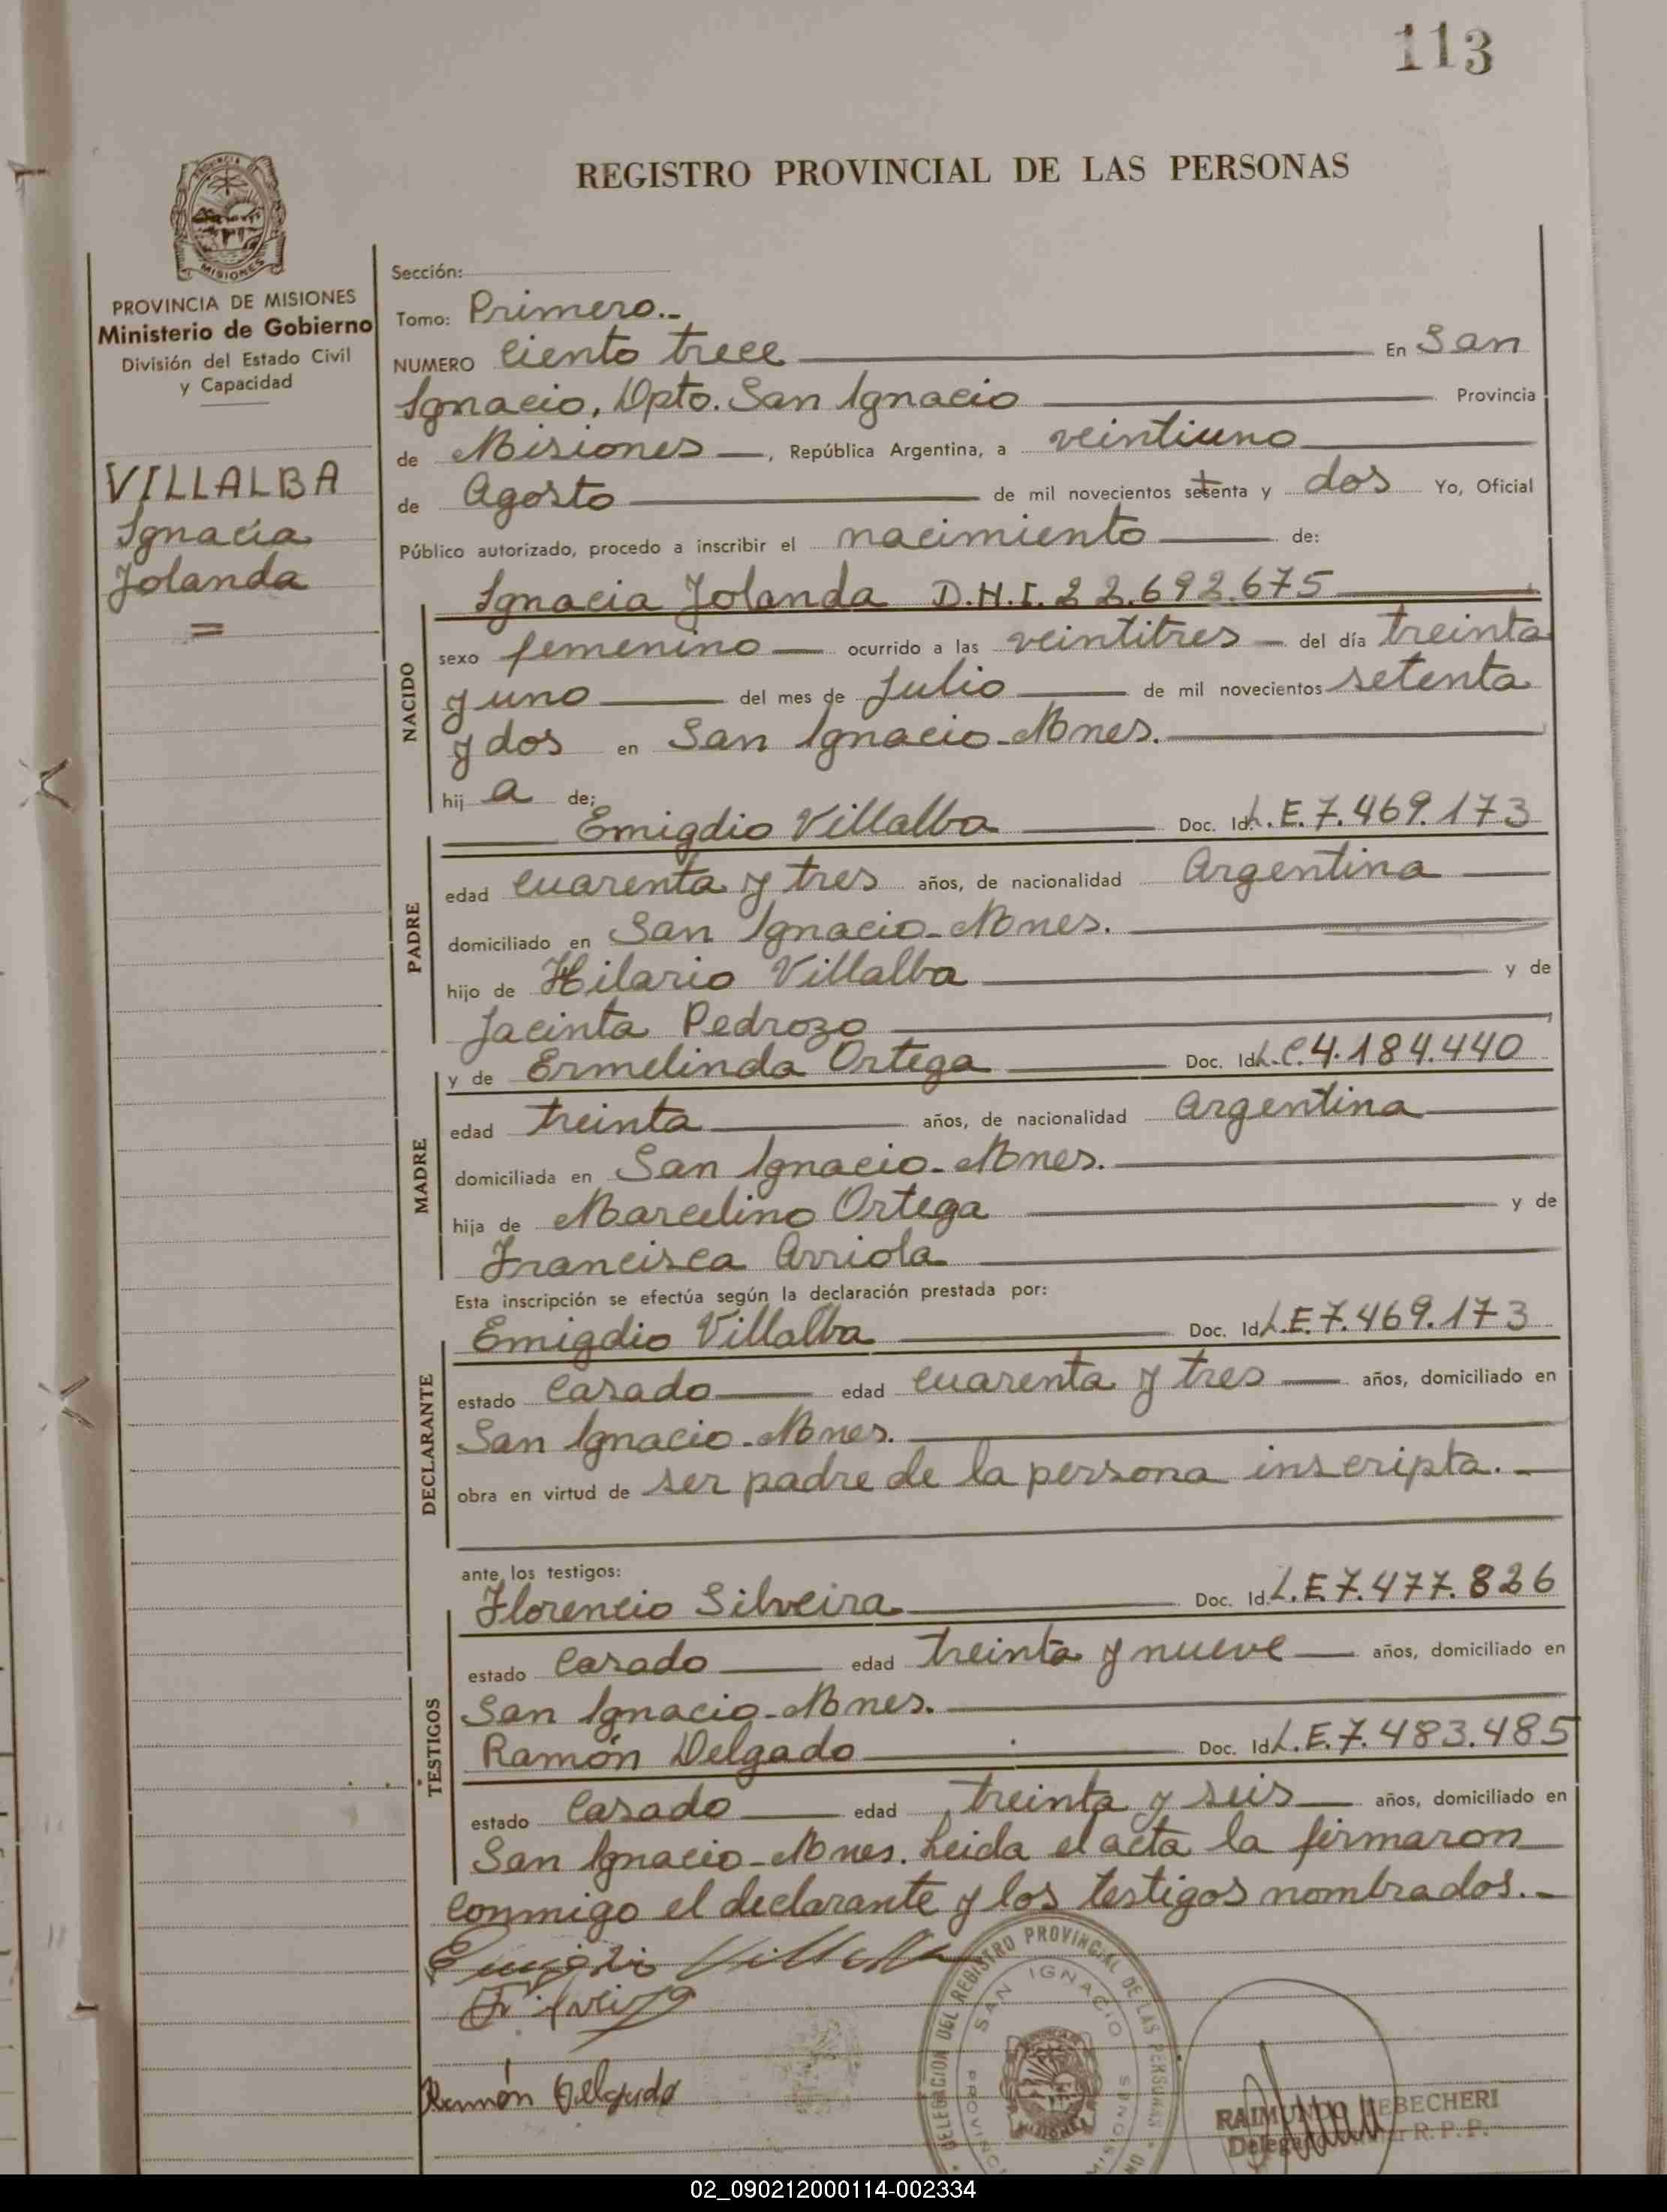 113
REGISTRO PROVINCIAL DE LAS PERSONAS
PROVINCIA
MISIONES
PROVINCIA DE MISIONES
Ministerio de Gobierno
División del Estado Civil
y Capacidad
VILLALBA
Ignacia
Yolanda
=
Sección:
Tomo: Primero.-
NUMERO Ciento trece En San
Ignacio, Dpto. San Ignacio Provincia
de Misiones, República Argentina, a veintiuno
de Agosto de mil novecientos setenta y dos Yo, Oficial
Público autorizado, procedo a inscribir el nacimiento de:
Ignacia Yolanda D.N.I. 22.692.675
NACIDO
sexo femenino ocurrido a las veintitres del día treinta
y uno del mes de Julio de mil novecientos setenta
y dos en San Ignacio-Mnes.
hij a de;
Emigdio Villalba Doc. Id. L.E. 7.469.173
PADRE
edad cuarenta y tres años, de nacionalidad Argentina
domiciliado en San Ignacio-Mnes.
hijo de Hilario Villalba y de
Jacinta Pedrozo
y de Ermelinda Ortega Doc. Id. L.C. 4.184.440
MADRE
edad treinta años, de nacionalidad Argentina
domiciliada en San Ignacio-Mnes.
hija de Marcelino Ortega y de
Francisca Arriola
Esta inscripción se efectúa según la declaración prestada por:
Emigdio Villalba Doc. Id. L.E. 7.469.173
DECLARANTE
estado Casado edad cuarenta y tres años, domiciliado en
San Ignacio-Mnes.
obra en virtud de ser padre de la persona inscripta.-
ante los testigos:
Florencio Silveira Doc. Id. L.E. 7.477.826
TESTIGOS
estado Casado edad treinta y nueve años, domiciliado en
San Ignacio-Mnes.
Ramón Delgado Doc. Id. L.E. 7.483.485
estado Casado edad treinta y seis años, domiciliado en
San Ignacio-Mnes. Leida el acta la firmaron
conmigo el declarante y los testigos nombrados.-
Emigdio Villalba
F. Silveira
Ramón Delgado
DELEGACION DEL REGISTRO PROVINCIAL DE LAS PERSONAS
SAN IGNACIO
MISIONES
RAIMUNDO
R. P. P.
02_090212000114-002334